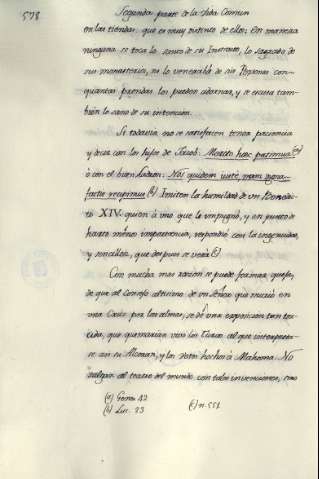 578
Segunda parte de la Vida Comun
en las tiendas, que es muy distinta de ellos; En manera
ninguna se toca lo santo de su Instituto, lo sagrado de
sus monasterios, ni lo venerable de sus Personas con
quantas prendas los puedan adornar, y se escusa tam-
bién lo sano de su intención.
Si todavia no se satisfacen tengan paciencia
y digan con los hijos de Jacob: Merito haec patimur (a)
ó con el buen Ladron: Nos quidem juste, nam digna
factis recipimus (b) Imiten la humildad de un Benedic-
to XIV. quien á uno que le impugnó, y en punto de
harto menos importancia, respondió con la ingenuidad,
y sencillez, que despues se verá (c)
Con mucha mas razon se puede formar quexa,
de que al Consejo altisimo de un Señor que murió en
una Cruz por las almas, se dé una exposicion tan tor-
cida, que quemarian vivo los Turcos al que interpreta-
se asi su Alcoran, y los dichos hechos á Mahoma. No
salgan al teatro del mundo con tales invenciones, sino
(a) Genes. 42
(b) Luc. 23
(c) n. 551